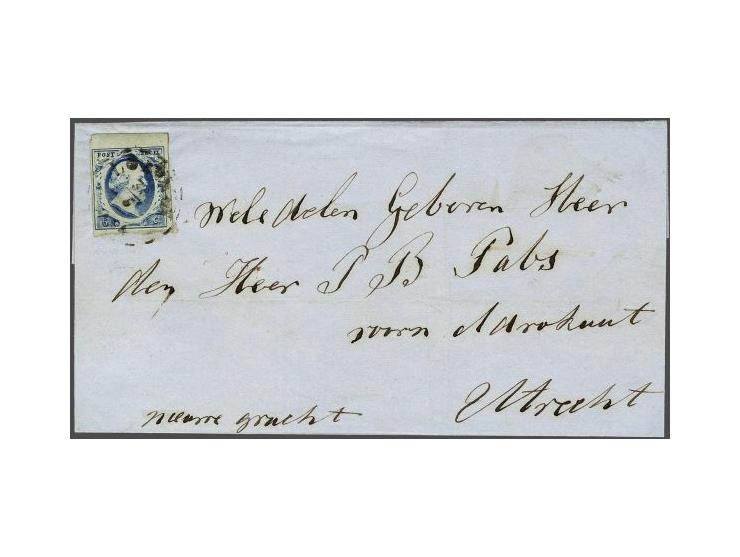 POST ZEGEL
5 C
Weledelen Geboren Heer
den Heer P B Pabs
voorn Advokaat
Utrecht
nieuwe gracht